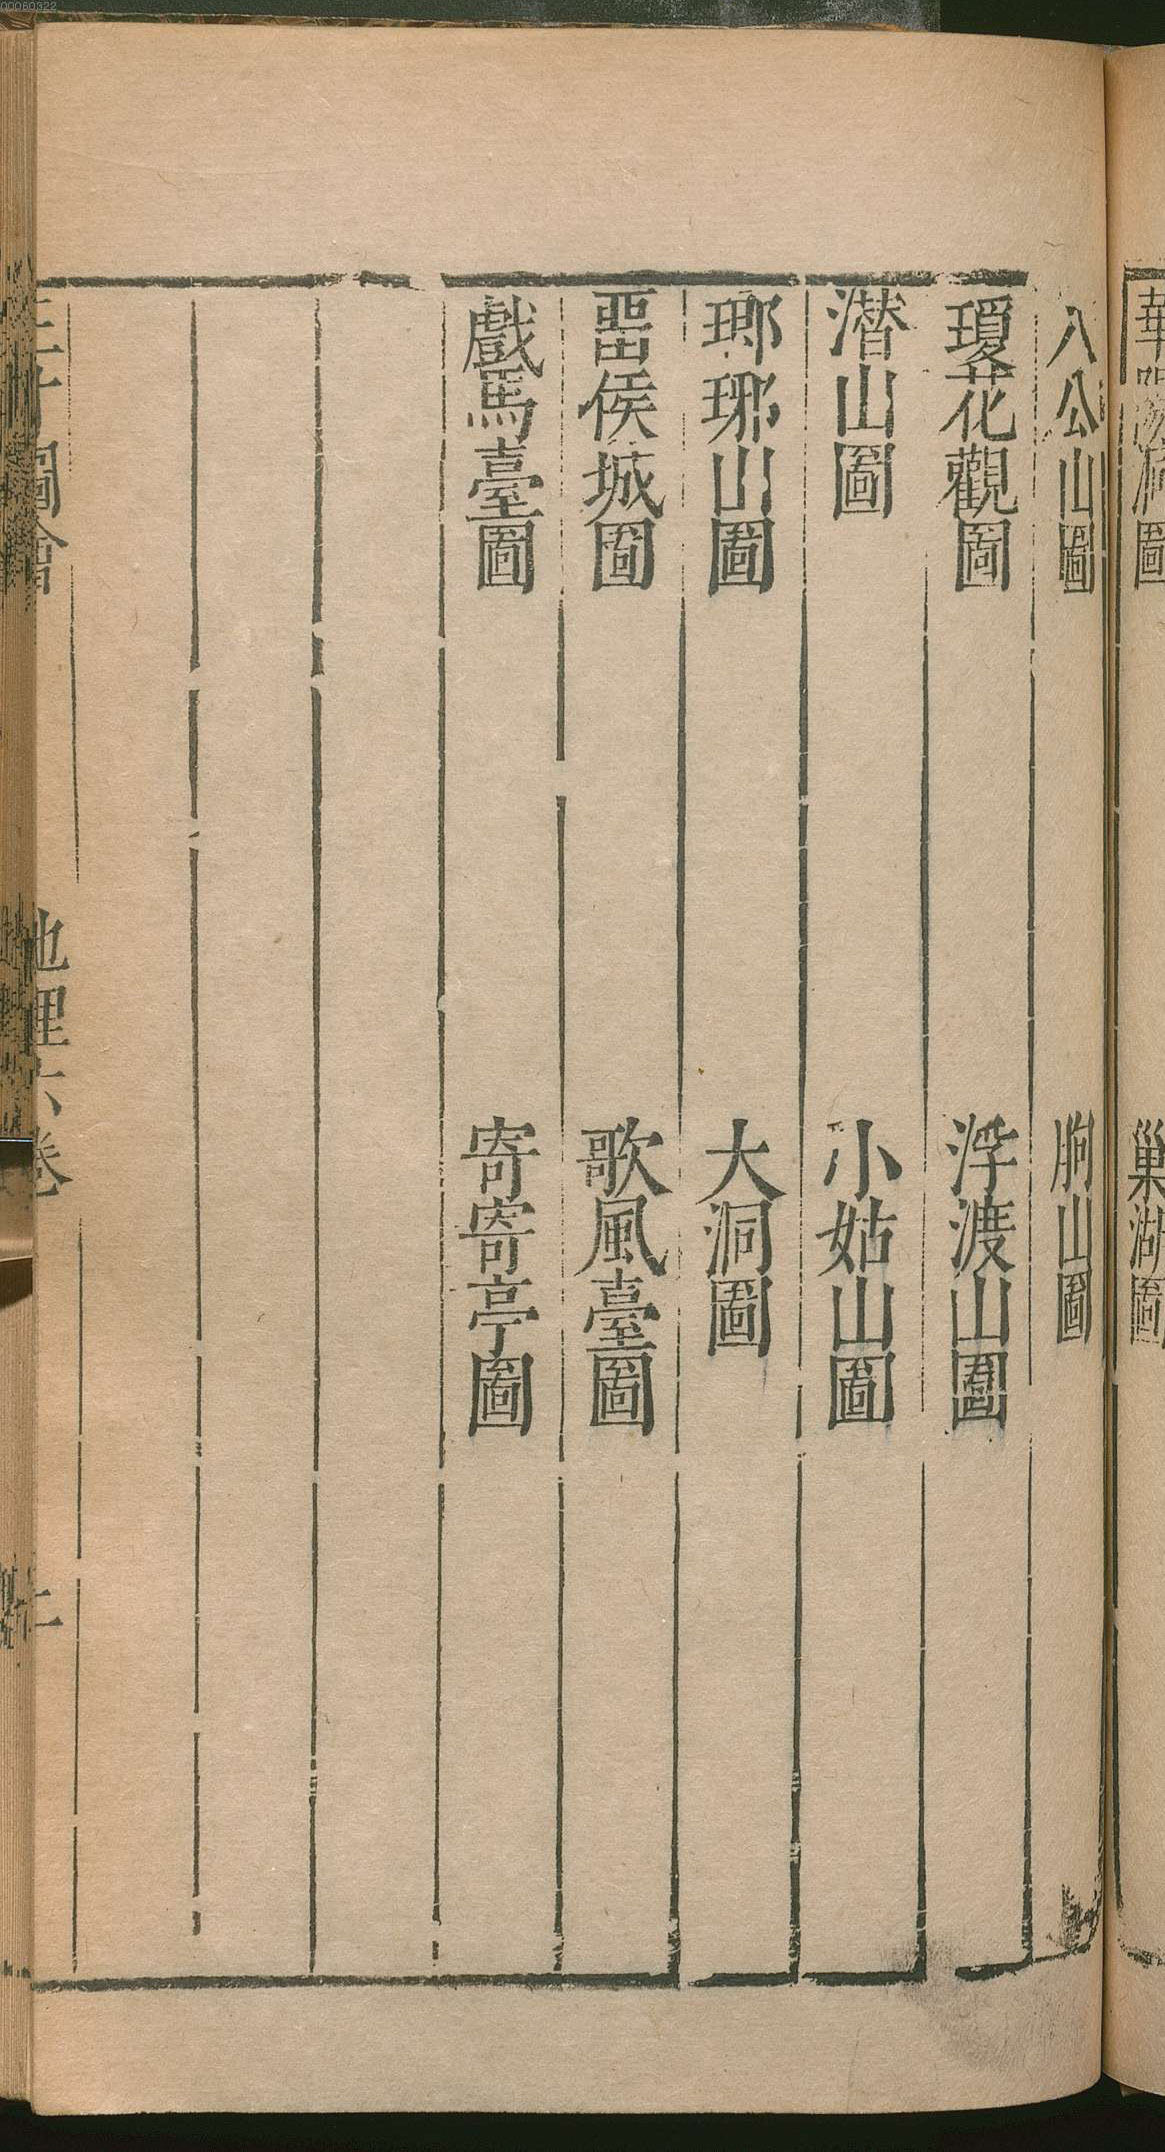 00060322
華陽洞圖
巢湖圖
八公山圖
朐山圖
瓊花觀圖
浮渡山圖
潛山圖
小姑山圖
瑯琊山圖
大洞圖
畱侯城圖
歌風臺圖
戲馬臺圖
寄寄亭圖
三才圖會
地理六卷
二